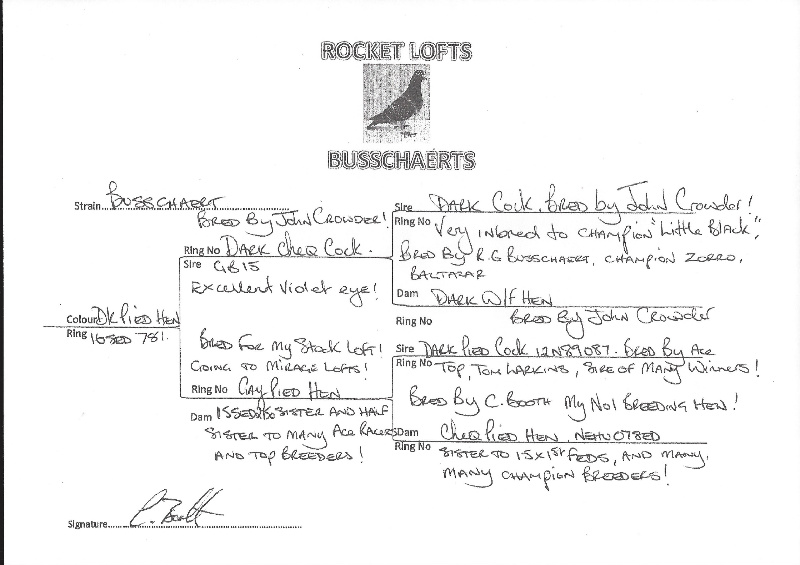 ROCKET LOFTS
BUSSCHAERTS
Strain BUSSCHAERT
BRED BY JOHN CROWDER!
Ring No DARK CHEQ COCK.
Sire GB15
EXCELLENT VIOLET EYE!
Colour DK PIED HEN
Ring 16SED 781.
BRED FOR MY STOCK LOFT!
GOING TO MIRAGE LOFTS!
Ring No GAY PIED HEN
Dam SISTER AND HALF
SISTER TO MANY ACE RACERS
AND TOP BREEDERS!
Sire DARK COCK. BRED by JOHN CROWDER!
Ring No VERY INBRED TO CHAMPION "LITTLE BLACK",
BRED BY R.G BUSSCHAERT, CHAMPION ZORRO,
BALTAZAR
Dam DARK W/F HEN
Ring No BRED BY JOHN CROWDER
Sire DARK PIED COCK 12N89087. BRED BY ACE
Ring No TOP, TOM LARKINS, SIRE OF MANY WINNERS!
BRED BY C. BOOTH MY NO1 BREEDING HEN!
Dam CHEQ PIED HEN.
Ring No SISTER TO 15X1ST FEDS, AND MANY,
MANY CHAMPION BREEDERS!
Signature C. Booth